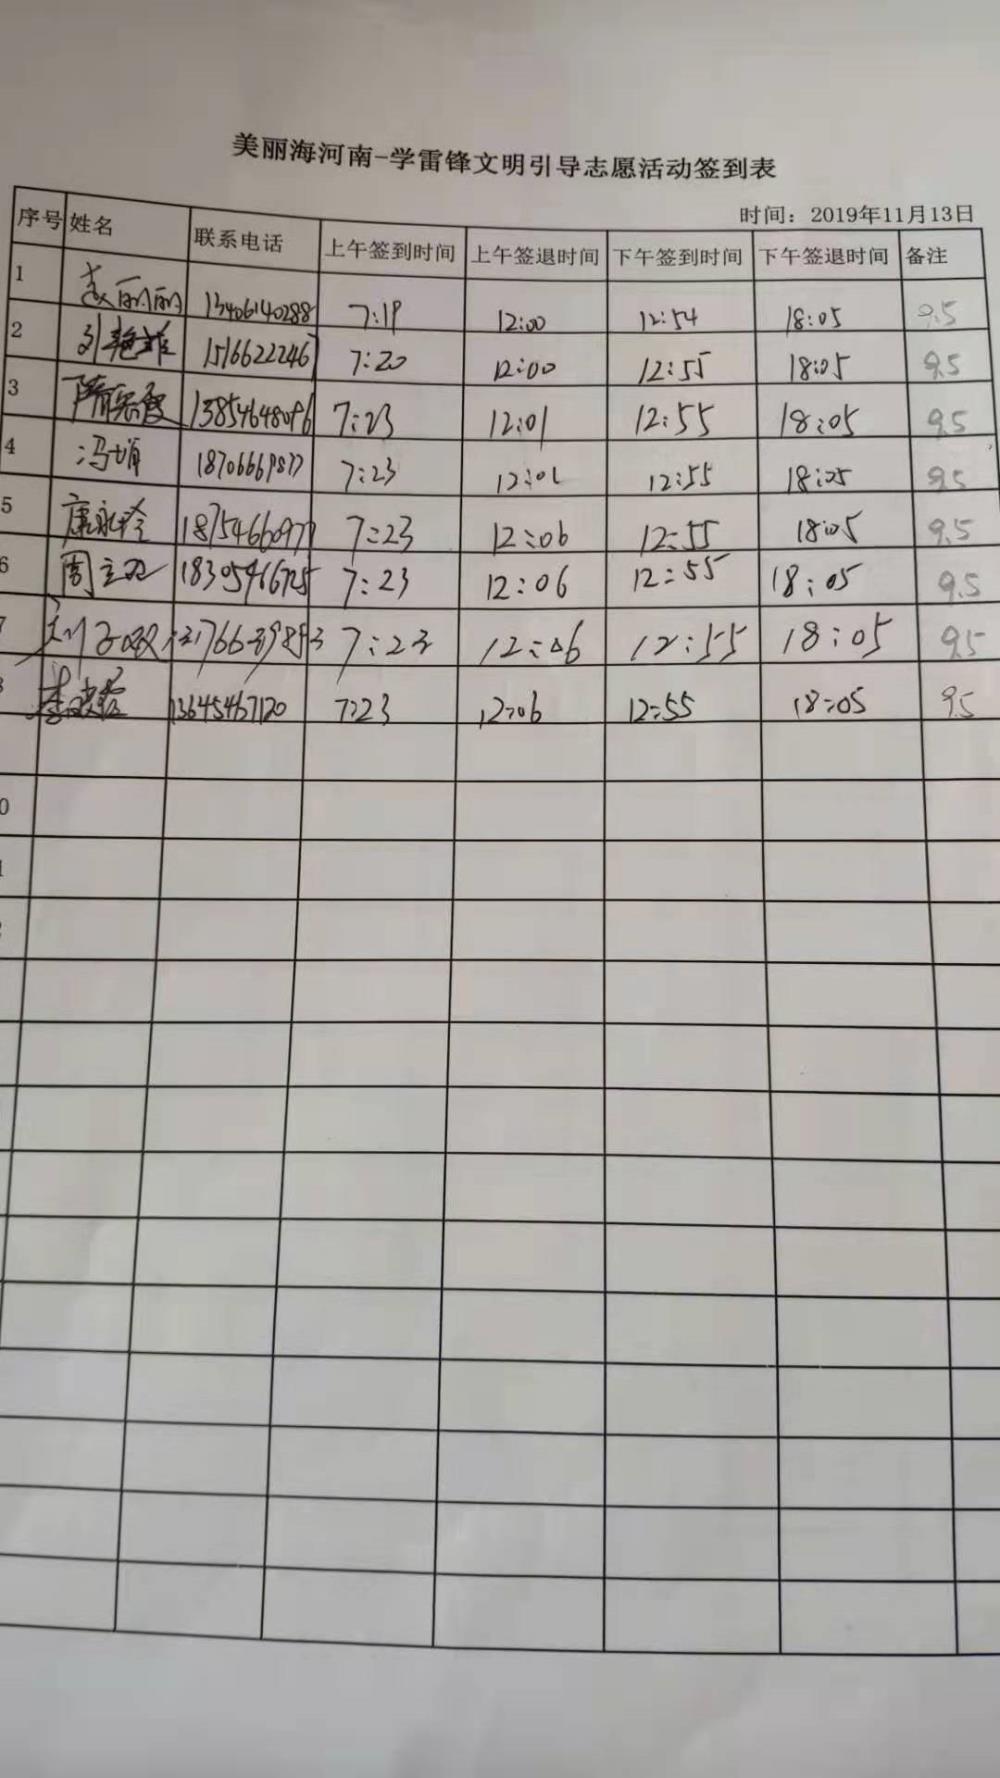 美丽海河南-学雷锋文明引导志愿活动签到表
时间：2019年11月13日
序号 姓名 联系电话 上午签到时间 上午签退时间 下午签到时间 下午签退时间 备注
1 13406140288 7:19 12:00 12:54 18:05 9.5
2 1516622246 7:20 12:00 12:55 18:05 9.5
3 13854648096 7:23 12:01 12:55 18:05 9.5
4 冯娟 18706669877 7:23 12:01 12:55 18:05 9.5
5 康永玲 18754660977 7:23 12:06 12:55 18:05 9.5
6 周立 18305466725 7:23 12:06 12:55 18:05 9.5
7:23 12:06 12:55 18:05 9.5
13645467120 7:23 12:06 12:55 18:05 9.5